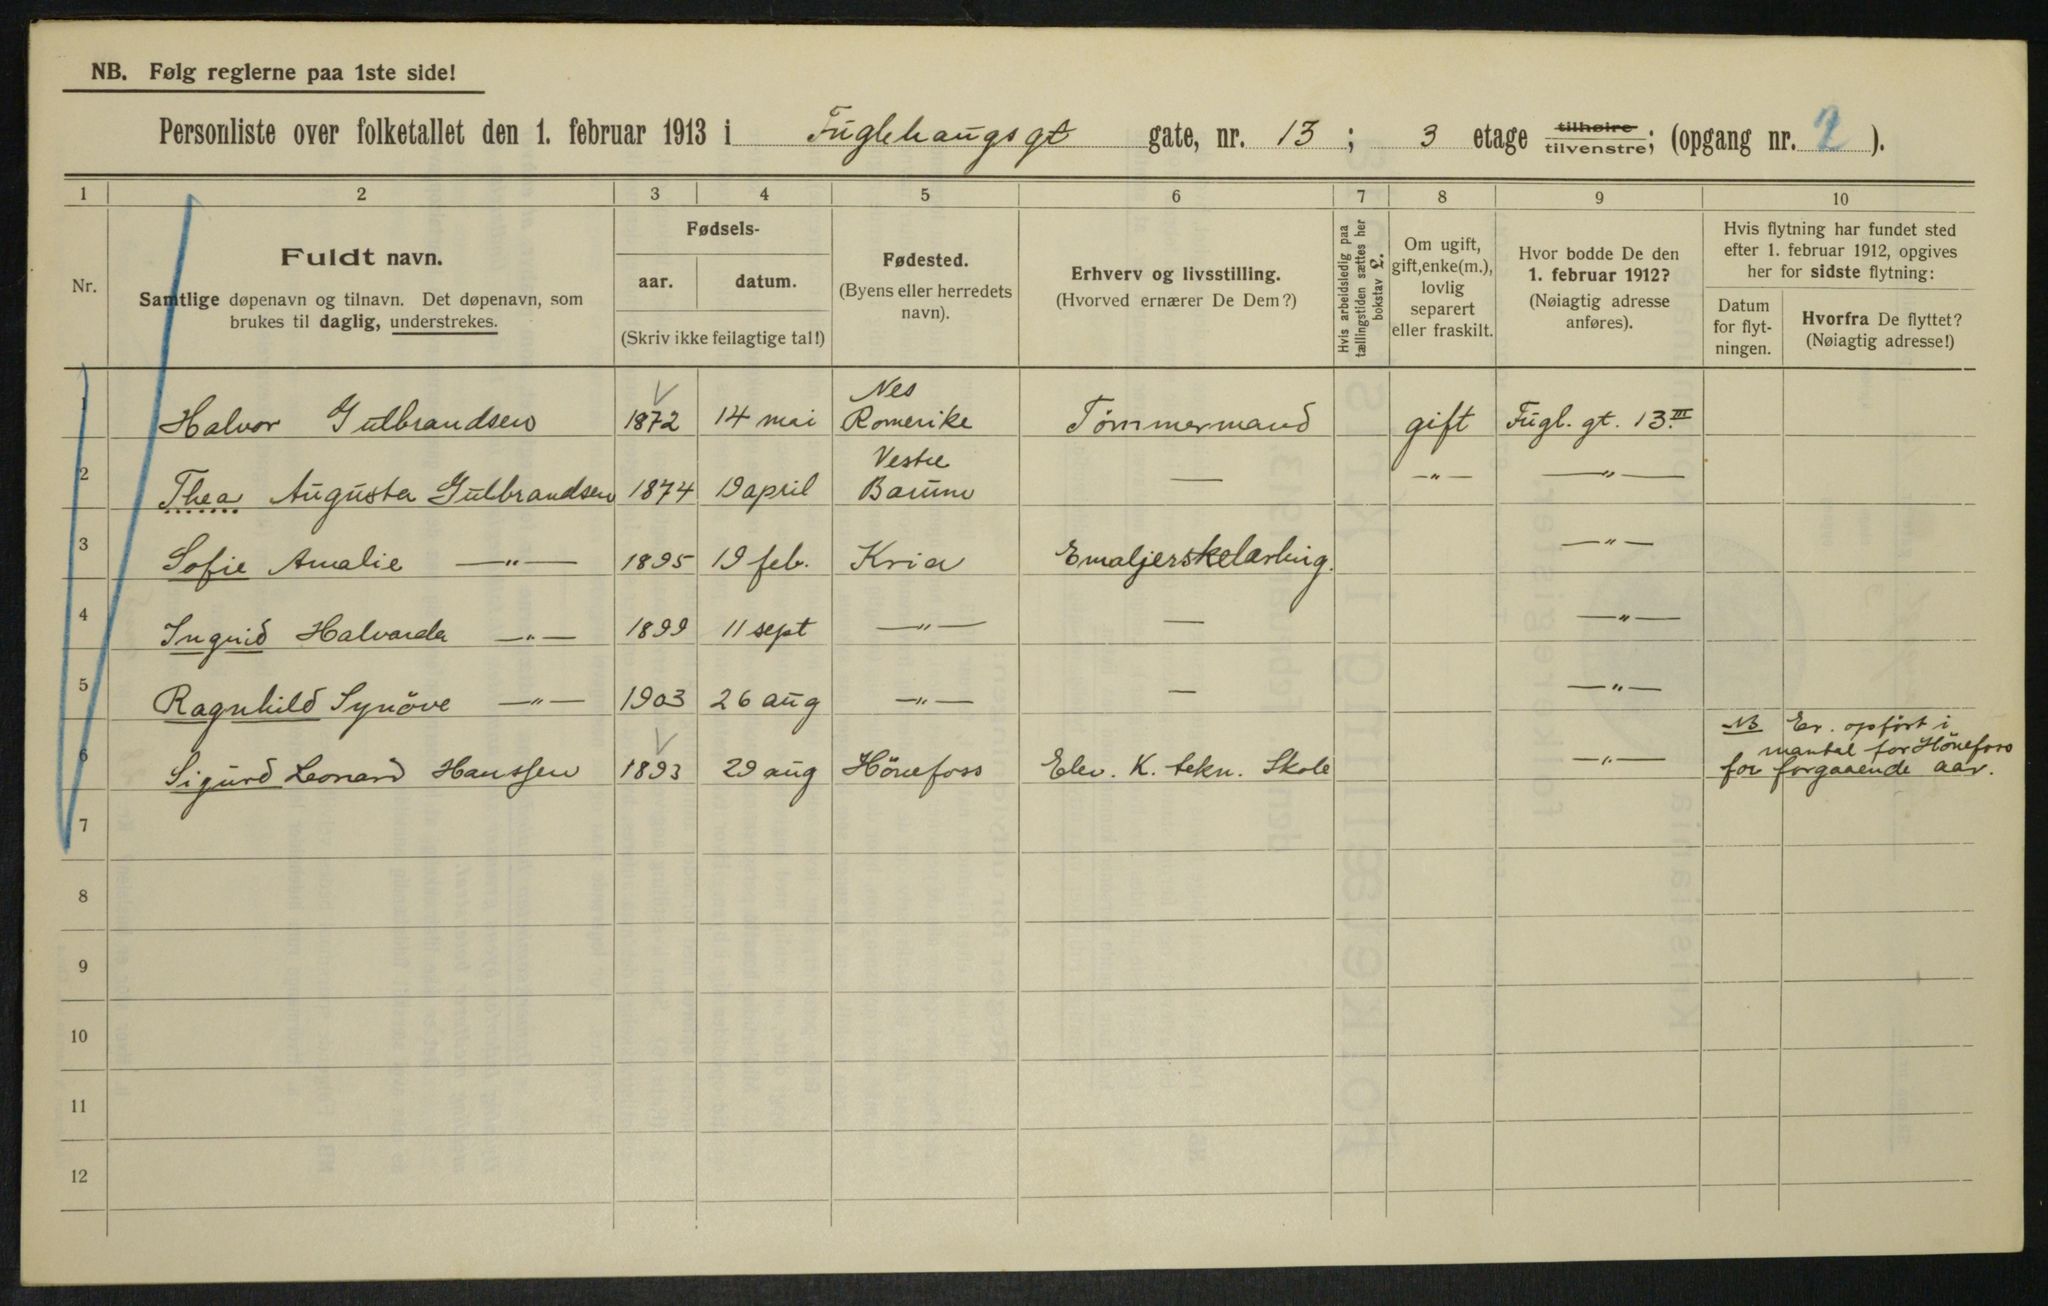 NB. Følg reglerne paa 1ste side!
Personliste over folketallet den 1. februar 1913 i Fuglehaugsgt gate, nr. 13 ; 3 etage tilhøire tilvenstre; (opgang nr. 2 ).
1 2 3 4 5 6 7 8 9 10
Nr.
Fuldt navn.
Samtlige døpenavn og tilnavn. Det døpenavn, som
brukes til daglig, understrekes.
Fødsels-
aar. datum.
(Skriv ikke feilagtige tal!)
Fødested.
(Byens eller herredets
navn).
Erhverv og livsstilling.
(Hvorved ernærer De Dem?)
Hvis arbeidsledig paa
tællingstiden sættes her
bokstav L.
Om ugift,
gift, enke(m.),
lovlig
separert
eller fraskilt.
Hvor bodde De den
1. februar 1912?
(Nøiagtig adresse
anføres).
Hvis flytning har fundet sted
efter 1. februar 1912, opgives
her for sidste flytning:
Datum
for flyt-
ningen.
Hvorfra De flyttet?
(Nøiagtig adresse!)
1 Halvor Gulbrandsen 1872 14 mai Nes Romerike Tømmermand gift Fugl. gt. 13 III
2 Thea Augusta Gulbrandsen 1874 19 april Vestre Barum — —"— —"—
3 Sofie Amalie —"— 1895 19 feb. Kria Emaljerskelærling. —"—
4 Ingrid Halvarda —"— 1899 11 sept —"— — —"—
5 Ragnhild Synöve —"— 1903 26 aug —"— — —"—
6 Sigurd Leonard Hanssen 1893 29 aug Hönefoss Elev. K. tekn. Skole —"— NB Er. opført i
mantal for Hönefoss
for forgaaende aar.
7
8
9
10
11
12